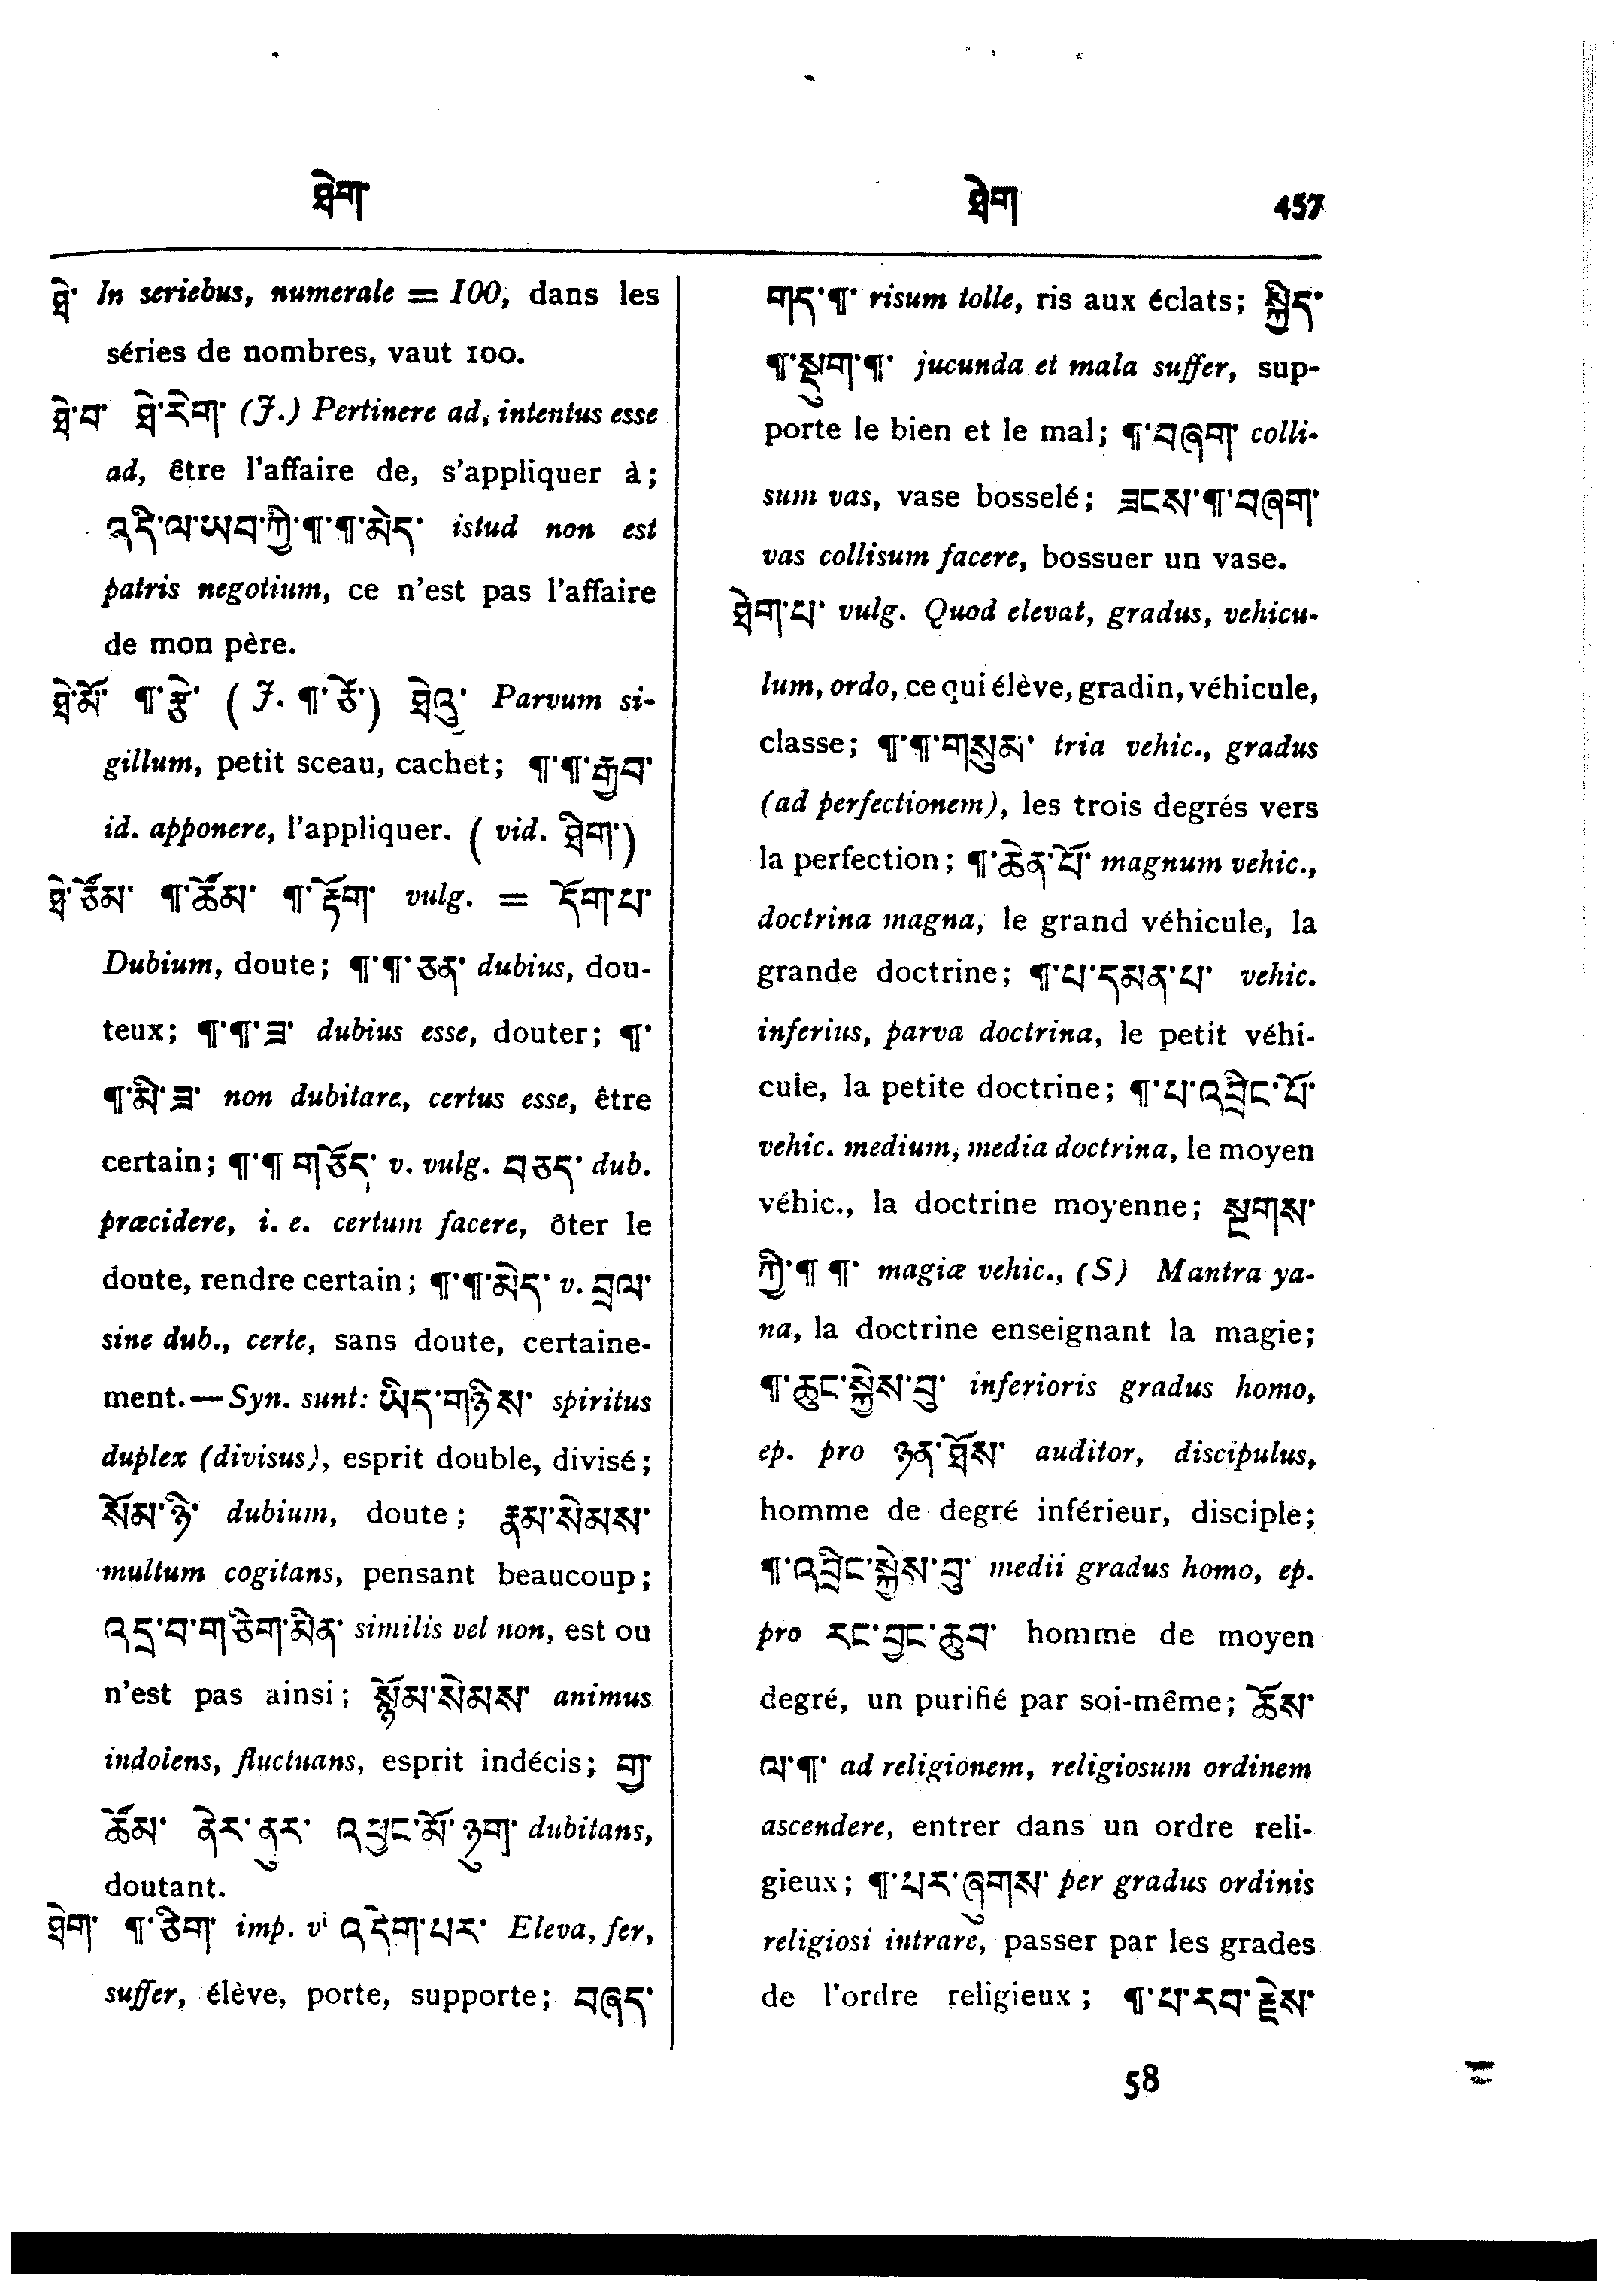 ཐེག
ཐེག 457
ཐེ་ In seriebus, numerale = 100, dans les
séries de nombres, vaut 100.
ཐེ་བ ཐེ་རེག་ (J.) Pertinere ad, intentus esse
ad, être l'affaire de, s'appliquer à;
འདི་ལ་ཡབ་ཀྱི་¶་¶་མེད་ istud non est
patris negotium, ce n'est pas l'affaire
de mon père.
ཐེ་མོ་ ¶་རྩེ་ (J. ¶་ཙོ་) ཐེའུ་ Parvum si-
gillum, petit sceau, cachet; ¶་¶་རྒྱབ་
id. apponere, l'appliquer. (vid. ཐིག་)
ཐེ་ཙོམ་ ¶་ཚོམ་ ¶་རྟོག་ vulg. = དོག་པ་
Dubium, doute; ¶་¶་ཅན་ dubius, dou-
teux; ¶་¶་ཟ་ dubius esse, douter; ¶་
¶་མི་ཟ་ non dubitare, certus esse, être
certain; ¶་¶ གཅོད་ v. vulg. བཅད་ dub.
præcidere, i. e. certum facere, ôter le
doute, rendre certain; ¶་¶་མེད་ v. བྲལ་
sine dub., certe, sans doute, certaine-
ment.—Syn. sunt: ཡིད་གཉིས་ spiritus
duplex (divisus), esprit double, divisé;
སོམ་ཉི་ dubium, doute; རྣམ་སེམས་
multum cogitans, pensant beaucoup;
འདྲ་བ་གཅིག་མིན་ similis vel non, est ou
n'est pas ainsi; སྙོམ་སེམས་ animus
indolens, fluctuans, esprit indécis; གྱ་
ཚོམ་ ནེར་ནུར་ འཕྱང་མོ་ཉུག་ dubitans,
doutant.
ཐེག་ ¶་ཅིག་ imp. vi འདེག་པར་ Eleva, fer,
suffer, élève, porte, supporte; བཞད་
གད་¶་ risum tolle, ris aux éclats; སྐྱིད་
¶་སྡུག་¶་ jucunda et mala suffer, sup-
porte le bien et le mal; ¶་བཞག་ colli-
sum vas, vase bosselé; ཟངས་¶་བཞག་
vas collisum facere, bossuer un vase.
ཐེག་པ་ vulg. Quod elevat, gradus, vehicu-
lum, ordo, ce qui élève, gradin, véhicule,
classe; ¶་¶་གསུམ་ tria vehic., gradus
(ad perfectionem), les trois degrés vers
la perfection; ¶་ཆེན་པོ་ magnum vehic.,
doctrina magna, le grand véhicule, la
grande doctrine; ¶་པ་དམན་པ་ vehic.
inferius, parva doctrina, le petit véhi-
cule, la petite doctrine; ¶་པ་འབྲིང་པོ་
vehic. medium, media doctrina, le moyen
véhic., la doctrine moyenne; སྔགས་
ཀྱི་¶ ¶་ magiæ vehic., (S) Mantra ya-
na, la doctrine enseignant la magie;
¶་ཆུང་སྐྱེས་བུ་ inferioris gradus homo,
ep. pro ཉན་ཐོས་ auditor, discipulus,
homme de degré inférieur, disciple;
¶་འབྲིང་སྐྱེས་བུ་ medii gradus homo, ep.
pro རང་བྱང་ཆུབ་ homme de moyen
degré, un purifié par soi-même; ཆོས་
ལ་¶་ ad religionem, religiosum ordinem
ascendere, entrer dans un ordre reli-
gieux; ¶་པར་ཞུགས་ per gradus ordinis
religiosi intrare, passer par les grades
de l'ordre religieux; ¶་པ་རབ་རྗེས་
58